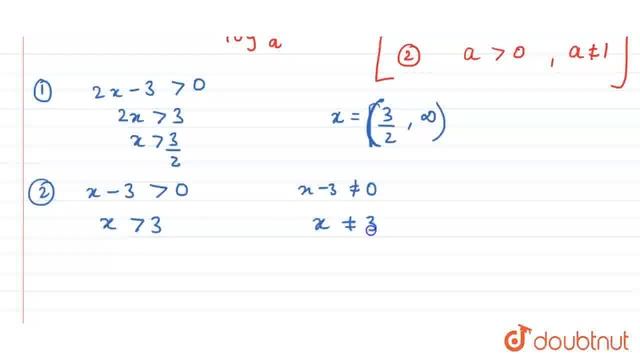 log a
② a > 0 , a ≠ 1
① 2x - 3 > 0
2x > 3
x > 3/2
x = (3/2 , ∞)
② x - 3 > 0 x - 3 ≠ 0
x > 3 x ≠ 3
doubtnut